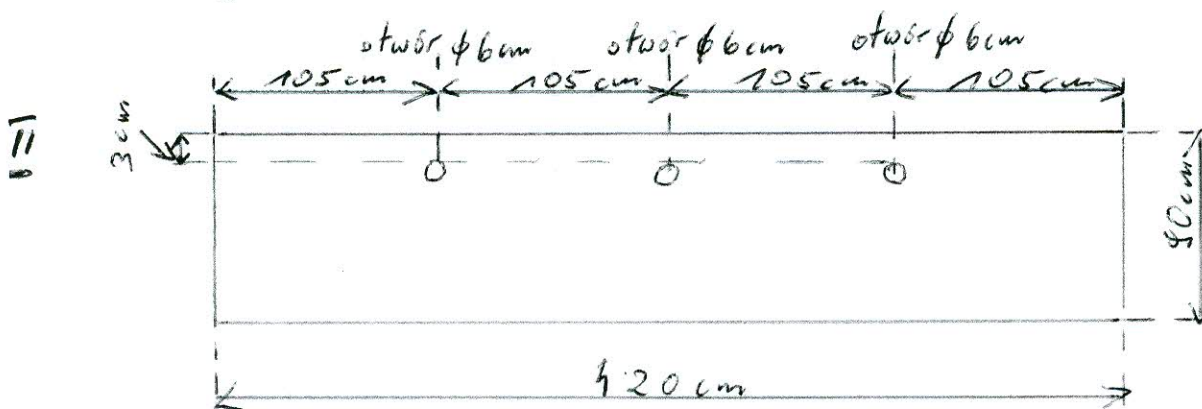 otwór ϕ 6cm otwór ϕ 6cm otwór ϕ 6cm
105cm 105cm 105cm 105cm
II
3cm
90cm
420cm